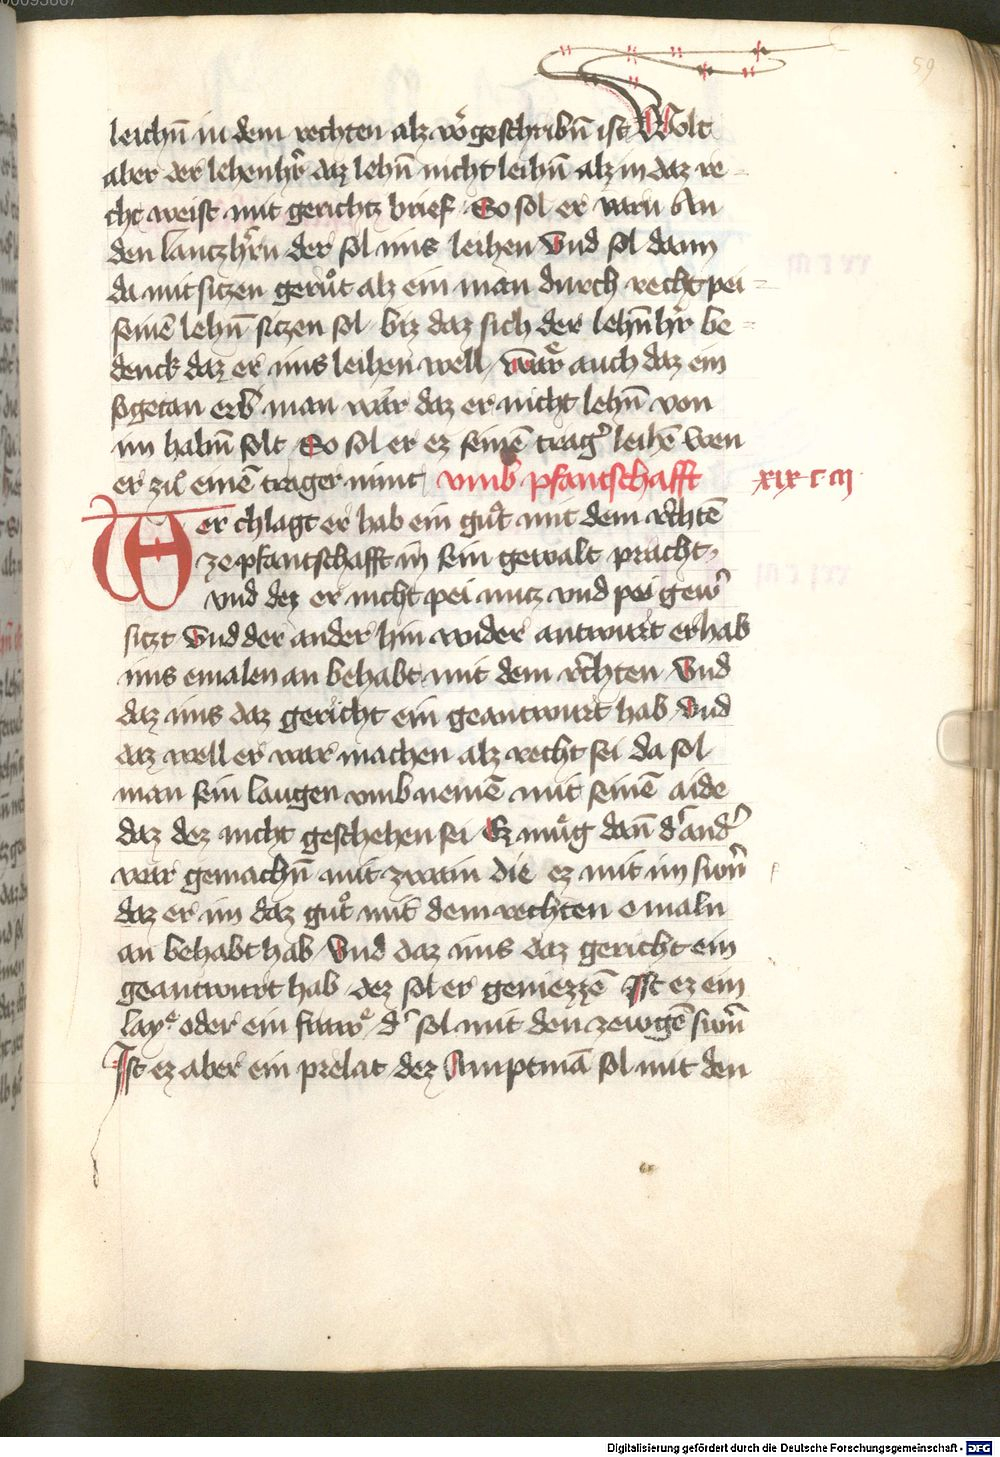 59
leichn̄ in dem rechten alz vor̊geschribn̄ ist Wolt
aber der lehenhr̄ daz lehn̄ nicht leihn̄ alz in daz re-
cht weist mit gerichtz brief So sol er varn An
den lantzhrn̄ der sol ims leihen Vnd sol dann
da mit sitzen gerůt alz ein man durch recht pei-
seinē lehn̄ sitzen sol biz daz sich der lehn̄hr̄ be-
denck daz er ims leihen well Wär auch daz ein
sogetan erb man wär daz er nicht lehn̄ von
im habm̄ solt So sol er ez seinē trag̉ leihē wen
er zu einē trager nimt vmb pfantschafft xix c iii
Wer chlagt er hab ein gůt mit dem rechtē
ze pfantschafft in sein gewalt pracht
vnd dez er nicht pei nutz vnd pei gew̉
sitzt Vnd der ander hin wider antwurt er hab
ims emalen an behabt mit dem rechten Vnd
daz ims daz gericht ein geantwurt hab Vnd
daz well er war machen alz recht sei da sol
man sein laugen vmb nemē mit seinē aide
daz dez nicht geschehen sei Ez můg dan̄ d̉ and̉
war gemachn̄ mit zwain die ez mit im swn̉
daz er im daz gůt mit dem rechten emaln
an behabt hab Vnd daz ims daz gericht ein
geantwurt hab dez sol er geniezzē Ist ez ein
lay oder ein fraw d̉ sol mit den zewgē swn̉
Ist ez aber ein prelat dez Amptmā sol mit den
Digitalisierung gefördert durch die Deutsche Forschungsgemeinschaft - DFG